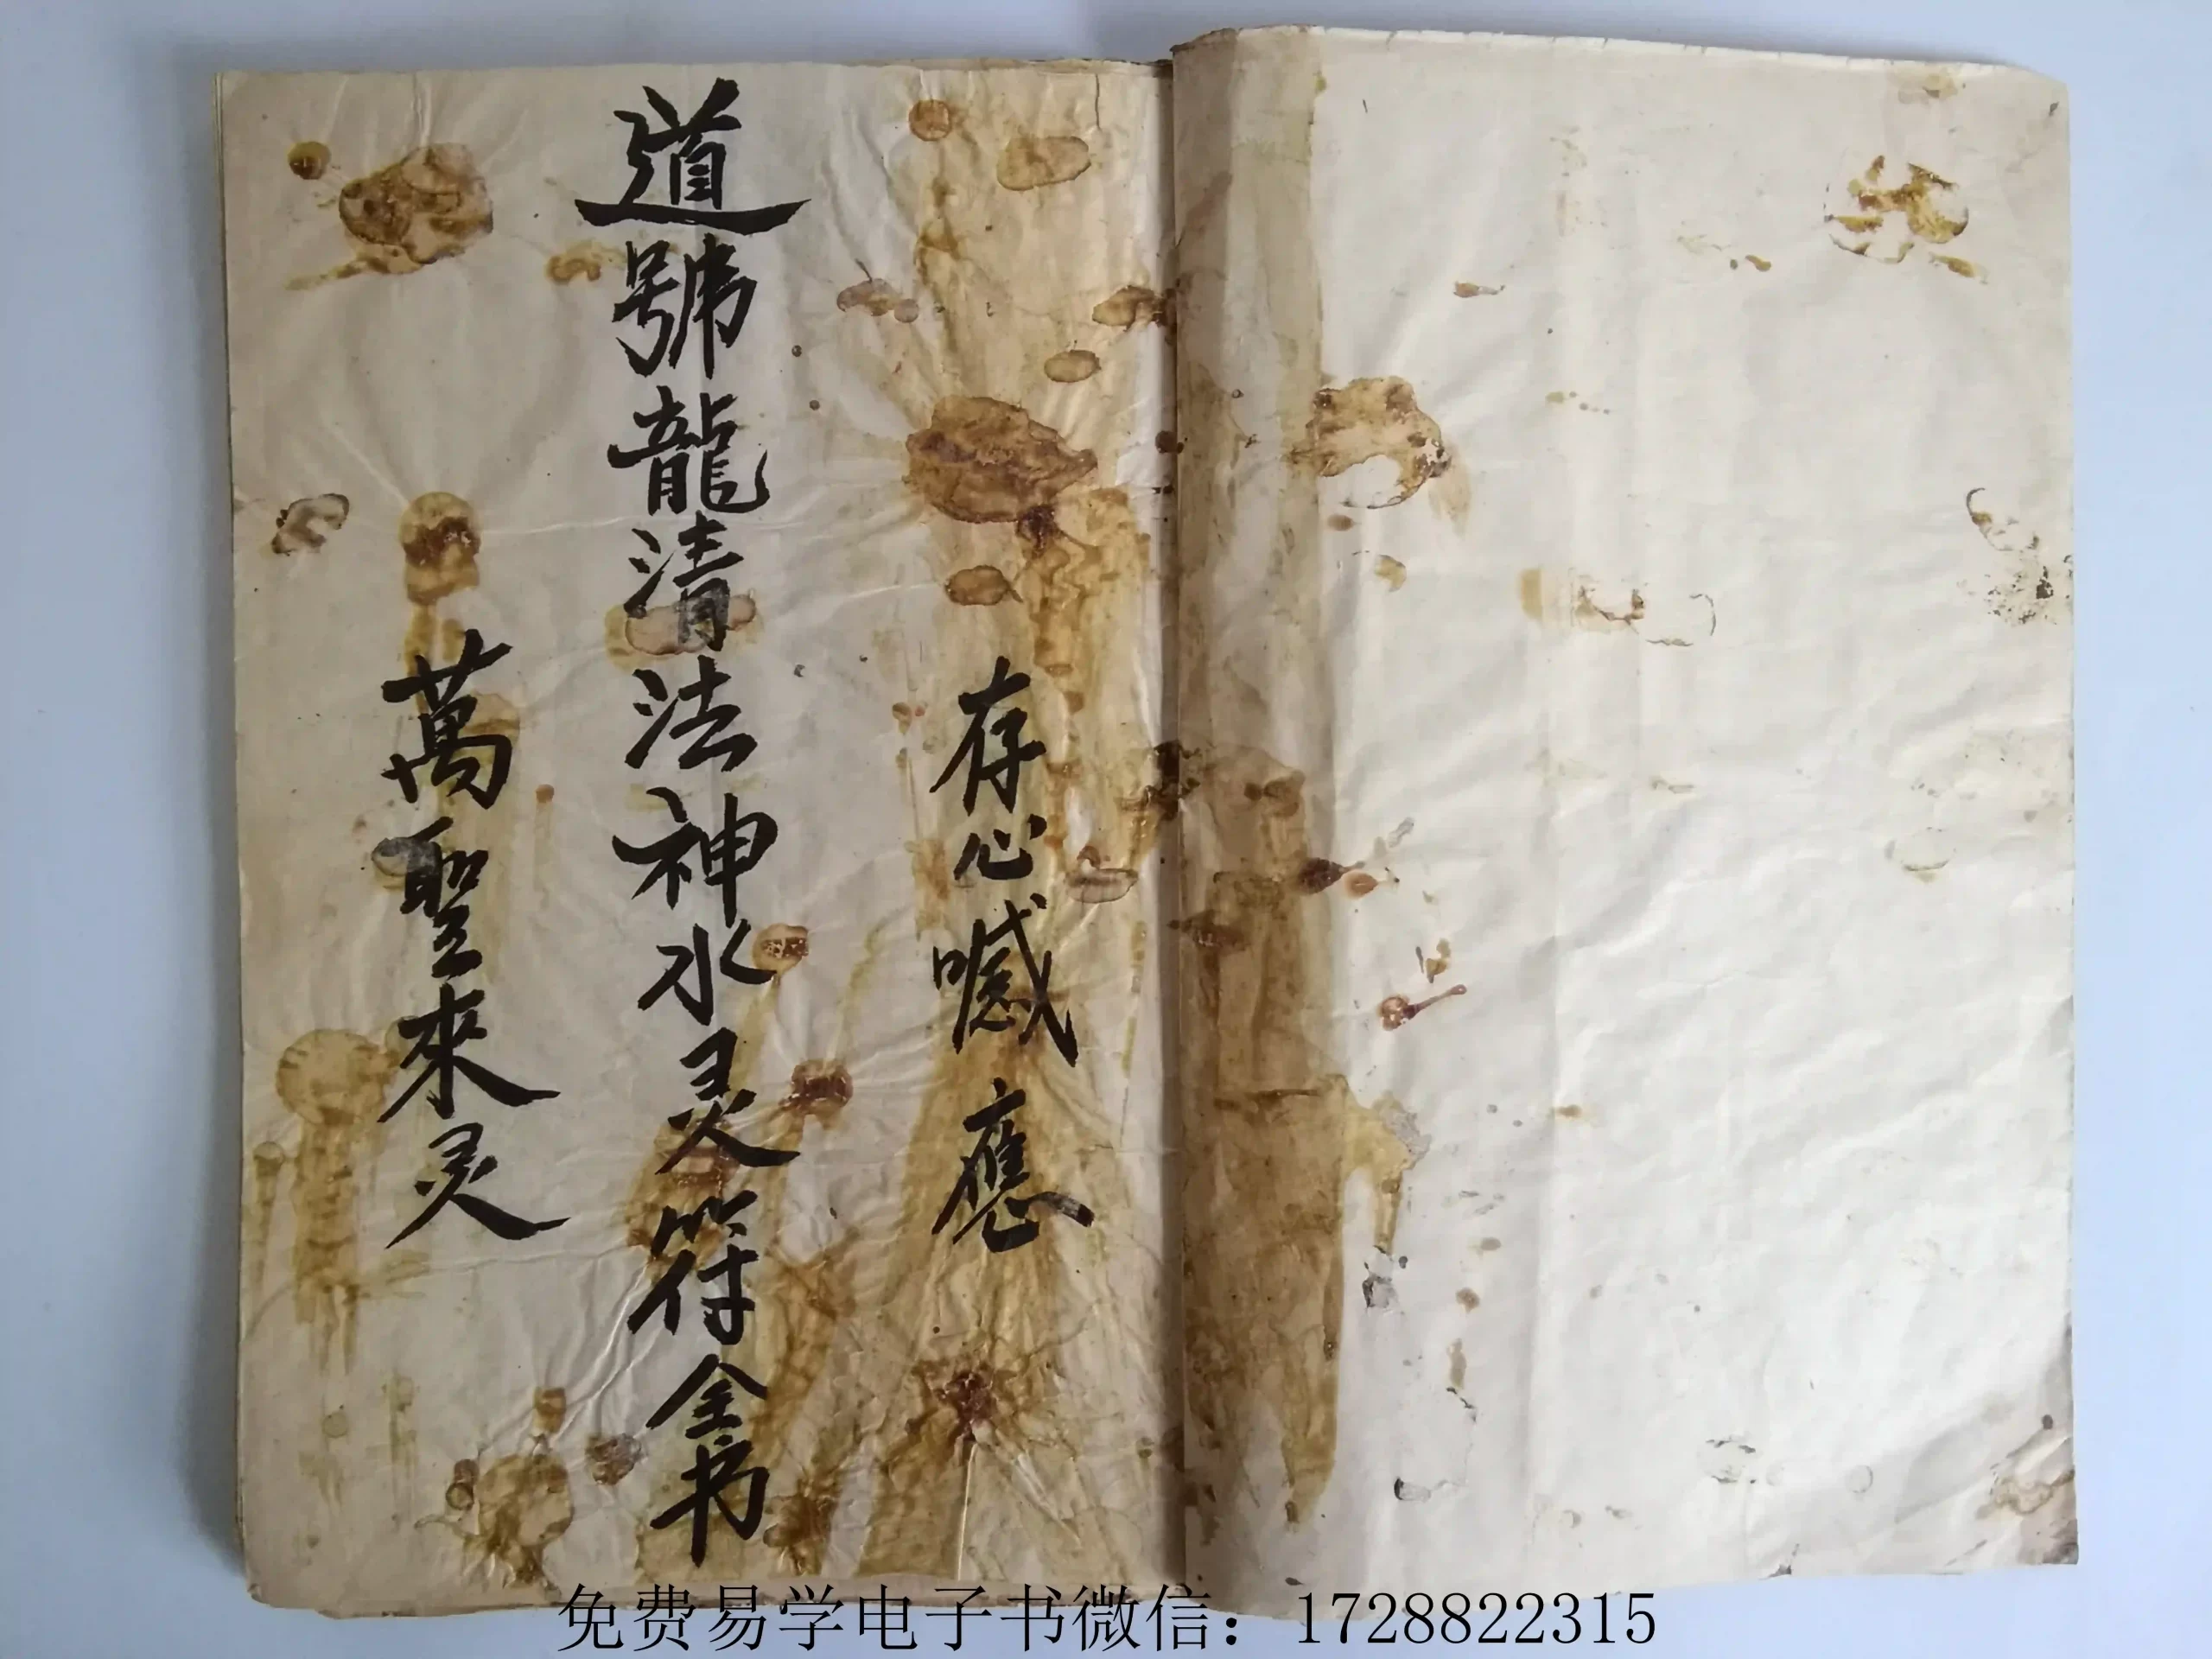 存心喊應
道號龍清法神水灵符全书
萬聖來灵
免费易学电子书微信：1728822315